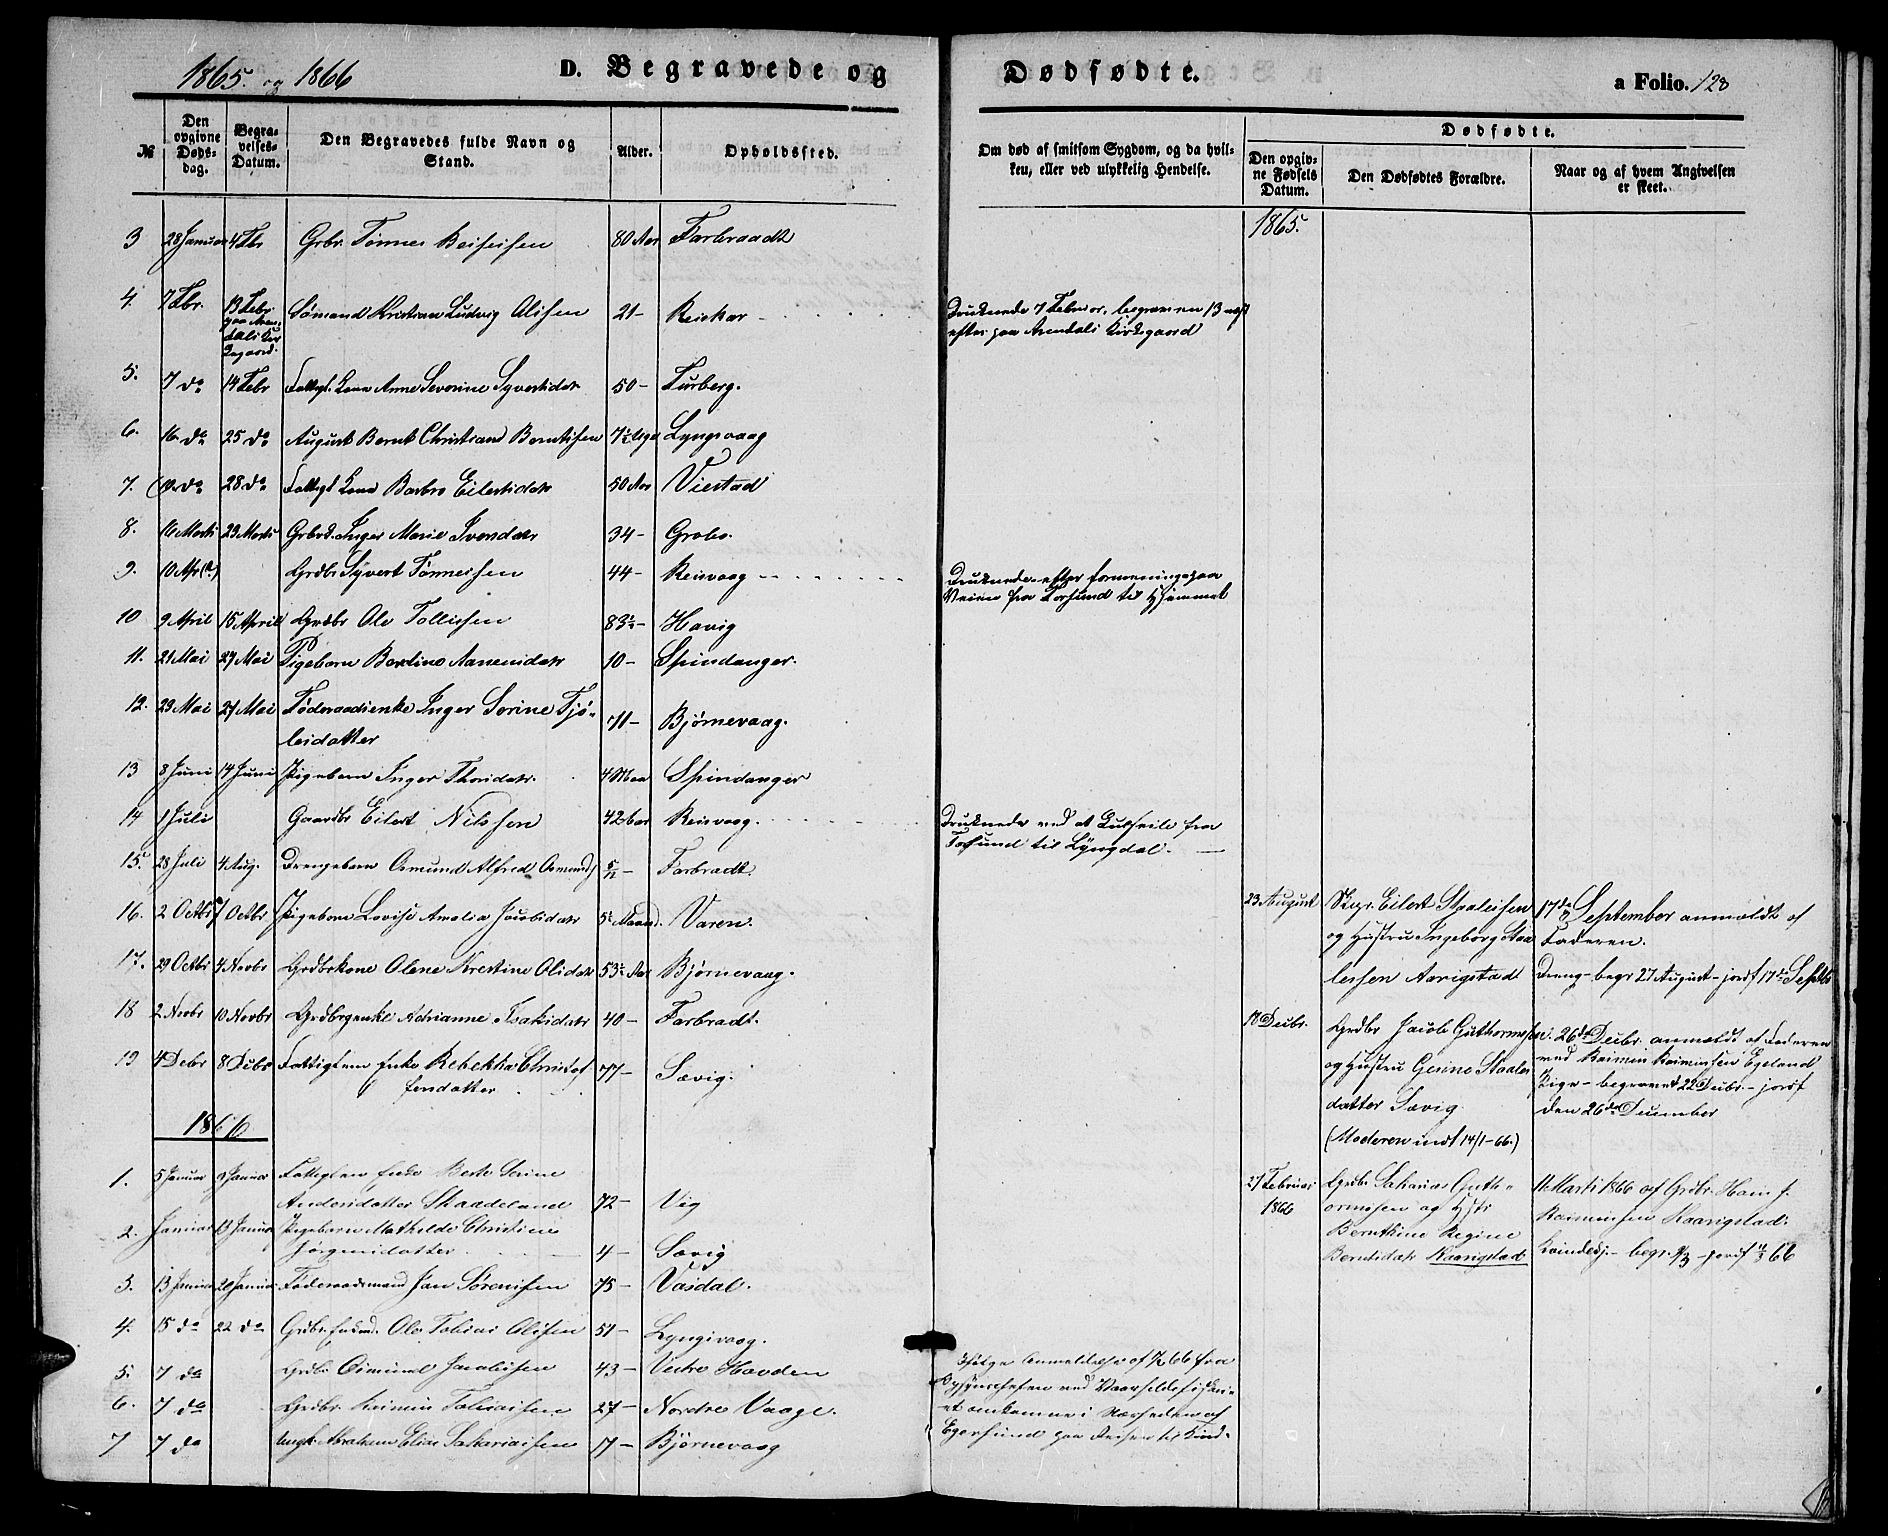 1865. og 1866
D. Begravede og
Dødfødte.
a Folio. 128
№
Den opgivne Døds-dag.
Begra-velses-Datum.
Den Begravedes fulde Navn og Stand.
Alder.
Opholdssted.
Om død af smitsom Sygdom, og da hvil-ken, eller ved ulykkelig Hendelse.
Dødfødte.
Den opgiv-ne Fødsels Datum.
Den Dødfødtes Forældre.
Naar og af hvem Angivelsen er skeet.
3 28 Januar 4 Fbr Grbr. Tønnes Reiersen 80 Aar Farbraadt
1865.
4. 7 Fbr. 13 Febr paa Aren-dals Kir-kegaard. Sømand Kristian Ludvig Olsen 21 -
Druknede 7 Februar, begraven 13 næst
efter paa Arendals Kirkegaard
5. 7 do 14 Febr Fattigl. Kone Anne Severine Syvertsdatr 50 - Furberg.
6. 16 do 25 do August Bernt Christian Berntsen Lyngsvaag
7. do 28 do Fattigl Kone Barbro Eilertsdatr 50 Aar Viestad
8. 16 Marts 23 Marts Inger Marie 34 -
9. 10 Apr Grdbr Syvert Tønnesen 44 - Reisvaag
Druknede efter formening paa
Veien fra Farsund til Hjemmet
10 9 April 15 April Grdbr Ole Tollissen 83½ - Havig
11. 21 Mai 27 Mai Pigebarn Bertine Aanensdatr 10 - Spindanger.
12. 23 Mai 27 Mai Føderaadsenke Inger Sorine Tjø-
lesdatter 71 - Bjørnevaag.
13 8 Juni 14 Juni Pigebarn Inger Thorsdatr. 4 Maa Spindanger
14 1 Juli Gaardbr Eilert Nilssen 42 Aar Reisvaag.
Druknede ved at Kulseile fra
Farsund til Lyngdal.
15. 28 Juli 4 Aug. Drengebarn Osmund Alfred Osmunds 5/12 - Farbradt.
16. 2 Octbr 7 Octbr Pigebarn Lovise Amalia Jacobsdatr 5½ Maaned. Varen.
23 August Eilert Staalesen
og Hustru Ingeborg Staa
lessen Aarigstad
17de September anmeldt af
Faderen.
Dreng - begr 27 August - jordf 17de Septbr
17. 29 Octbr 4 Novbr Grdbrkone Olene Krestine Olsdatr 53½ Aar Bjørnevaag.
18 2 Novbr 10 Novbr Grdbrgenke Adrianne Isaksdatr 40 - Farbradt.
18 Decbr. Grdbr Jacob Guthormsen
og Hustru Gesine Staales
datter Sævig
(Moderen indt 14/1-66.)
26de Decbr. anmeldt af Faderen
ved Reimer Reimersen Egeland
Pige - begravet 22 Decbr. - jordf
den 26de December
19 4 Debr 8 Debr Fattiglem Enke Rebekka Christof
fersdatter 77 - Sævig.
1866
1. 5 Januar 9 Januar Fattiglem Enke Berte Serine
Andersdatter Skaadeland 72 - Vig
27 Februar
1866
Grdbr. Sakarias Guth-
ormsen og Hstr
Bernthine Regine
Berntsdatr Kaarigstad
11 Marts 1866 af Grdbr. Hans J.
Reimersen Kaarigstad.
Kvindekj. - begr. 4/3 - jordf 11/3 66
2. Januar 13 Januar Pigebarn Mathilde Christine
Jørgensdatter 4 - Sævig
3. 13 Januar 20 Januar Føderaadsmand Jan Sørensen 75 - Vasdal.
4. 15 do 22 do Grdbr. Enkemd. Ole Tobias Olsen 51 - Lyngsvaag.
5. 7 do Grdbr Osmund Jacobsen 43 - Vestre Hovden
6. 7 do Grdbr. Reimer Tobiassen 27 - Nordre Vaage.
7 7 do Ungk. Abraham Elias Sakariassen 17 - Bjørnevaag
Ifølge Anmeldelse af 66 fra
ved Vaarsildefisker-
et omkomne i Nærheden af
Egersund paa Reisen til